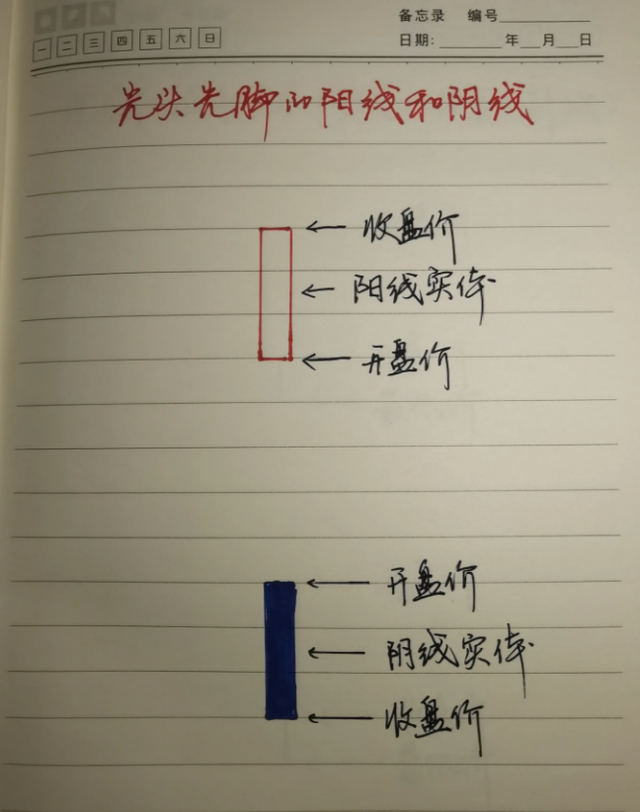 备忘录 编号
一 二 三 四 五 六 日
日期: 年 月 日
光头光脚的阳线和阴线
收盘价
阳线实体
开盘价
开盘价
阴线实体
收盘价